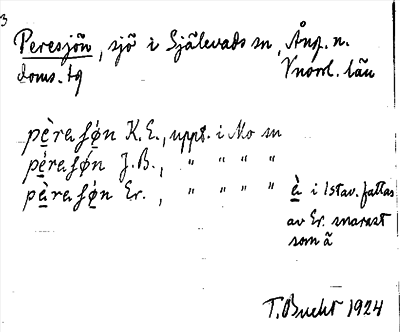 3
Peresjön, sjö i Själevads sn, Ång. n.
doms. tg Vnorrl. län
pè̱rasø̱̀n K.E., uppt. i Mo sn
pè̱rasø̱̀n J.B., " " " "
pè̱rasø̱̀n Er. , " " " " è̱ i 1 stav. fattas
av Er. snarast
som ä
T. Bucht 1924